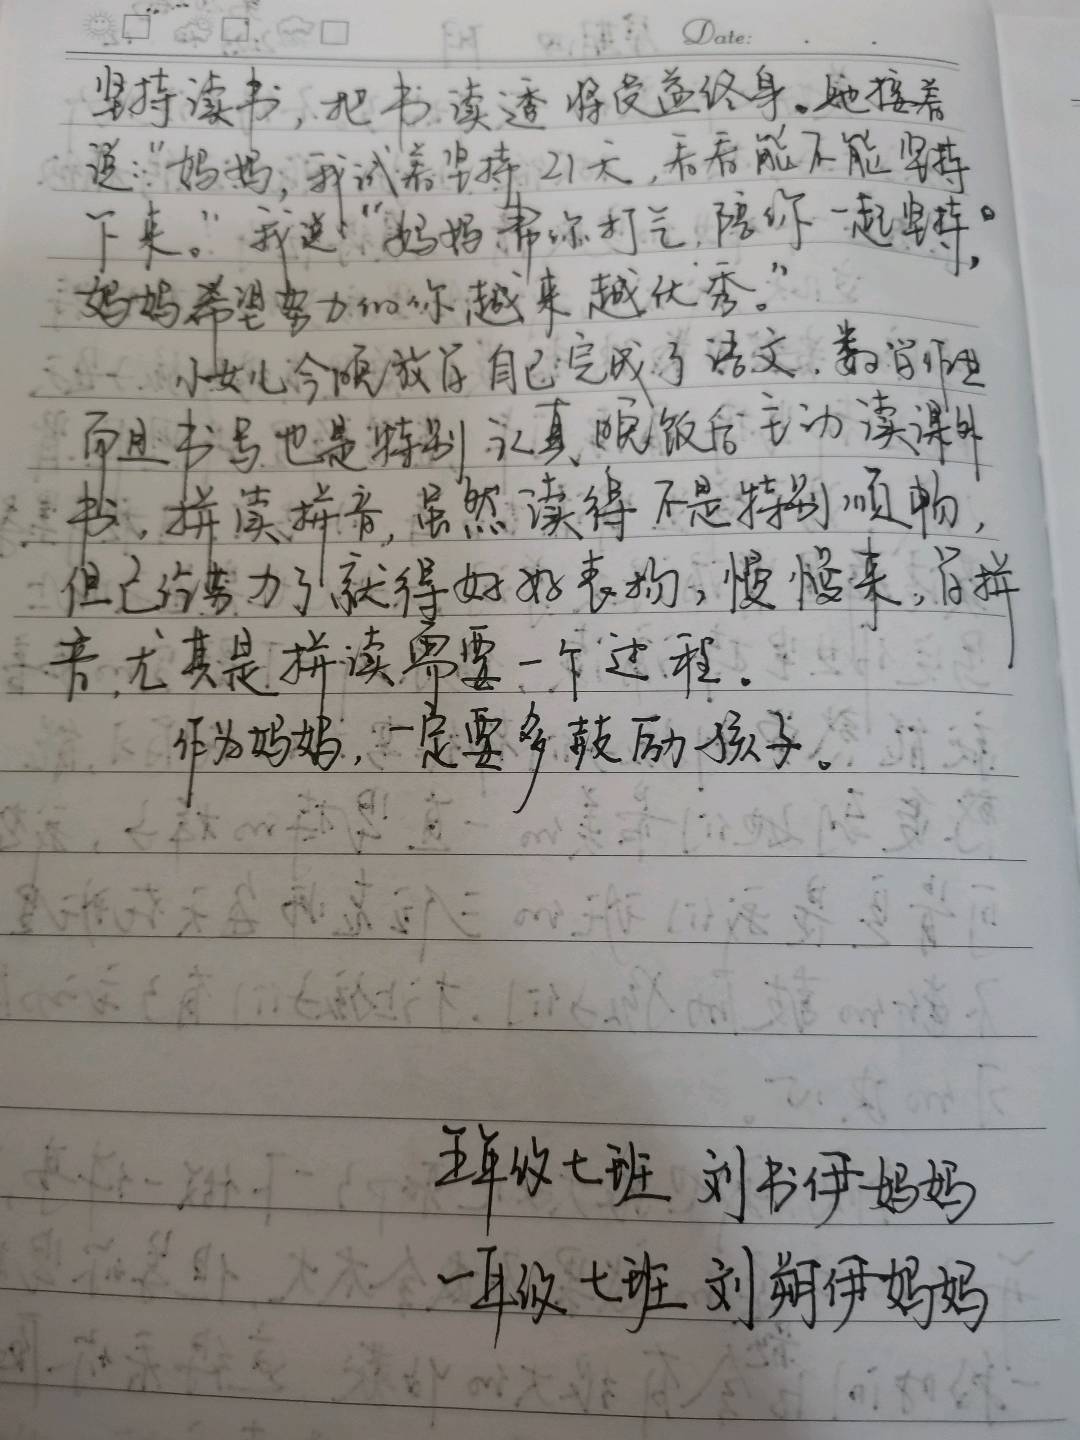 Date:
坚持读书，把书读透将受益终身。她接着
说：“妈妈，我试着坚持21天，看看能不能坚持
下来。”我说“妈妈帮你打气，陪你一起坚持。
妈妈希望努力的你越来越优秀。”
小女儿今晚放学自己完成了语文．数学作业
而且书写也是特别认真，晚饭后主动读课外
书，拼读拼音，虽然读得不是特别顺畅，
但已经努力了就得好好表扬，慢慢来，学拼
音，尤其是拼读需要一个过程。
作为妈妈，一定要多鼓励孩子。
五年级七班 刘书伊妈妈
一年级七班 刘朔伊妈妈